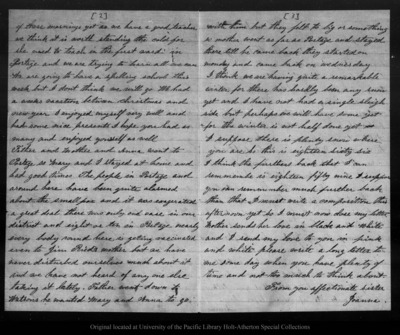 [2]
of these mornings yet as we have a good teacher
we think it is worth standing the cold for
she used to teach in the first ward in
Portage and we are trying to learn all we can
We are going to have a spelling school this
week but I dont think we will go We had
a weeks vacation between Christmas and
new year I enjoyed myself very well and
had some nice presents I hope you had as
many and enjoyed yourself as well
Father and Mother and Anna went to
Portage so Mary and I stayed at home and
had good times The people in Portage and
around here have been quite alarmed
about the small pox and it was exagerated
a great deal there was only one case in our
district and eight or ten in Portage nearly
every body round here is getting vaccinated
even to Grandma Reids mother but we have
never disturbed ourselves much about it
and we have not heard of any one else
taking it lately. Father went down to
he wanted Mary and Anna to go
[3]
with him but they felt to or something
so mother went as far as Portage and stayed
there till he came back they started on
monday and came back on wednesday
I think we are having quite a remarkable
winter for there has hardly been any snow
yet and I have not had a single sleigh
ride but perhaps we will have some yet
for the winter is not half done yet
I suppose there is plenty snow where
you are As this is eighteen sixty six
I think the furthest back that I can
remember is eighteen fifty nine I suppose
you can remember much further back
than that I must write a composition this
afternoon yet so I must now close my letter
Mother sends her love in black and white
and I send my love to you in pink
and white please write a long letter to
me some day when you have plenty of
time and not too much to think about
From your affectionate sister
Joanna.
Original located at University of the Pacific Library Holt-Atherton Special Collections